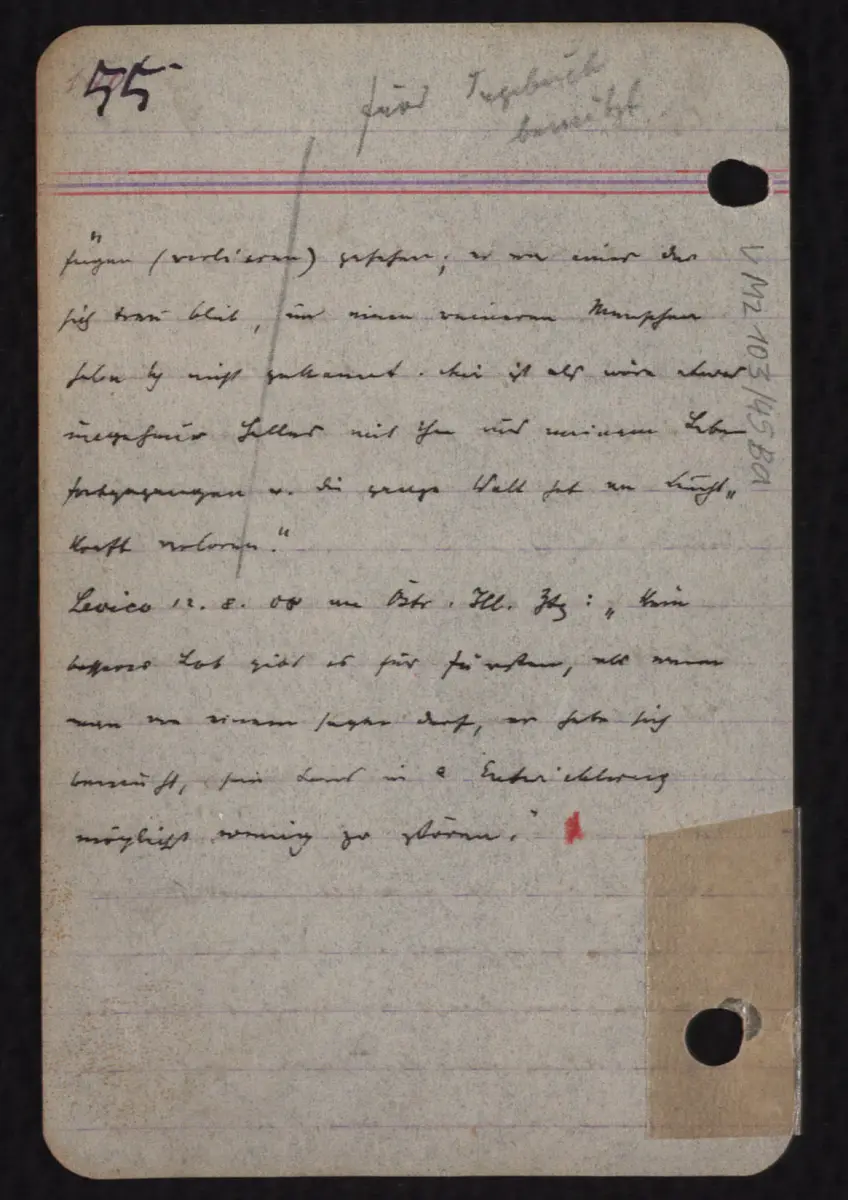 55
fürs Tagebuch
benützt
(verlieren) gesehen; er war einer der
sich treu blieb, einen reineren Menschen
habe ich nicht gekannt. Mir ist als wäre etwas
ungeheuer Helles mit ihm aus meinem Leben
fortgegangen u. die ganze Welt hat an Leucht„
kraft verloren."
Levico 12. 8. 08 an Östr. Ill. Ztg: „Kein
besseres Lob gibt es für Fürsten, als wenn
man von einem sagen darf, er habe sich
bemüht, sein Land in Entwicklung
möglichst wenig zu stören."
VM2 103/45Ba